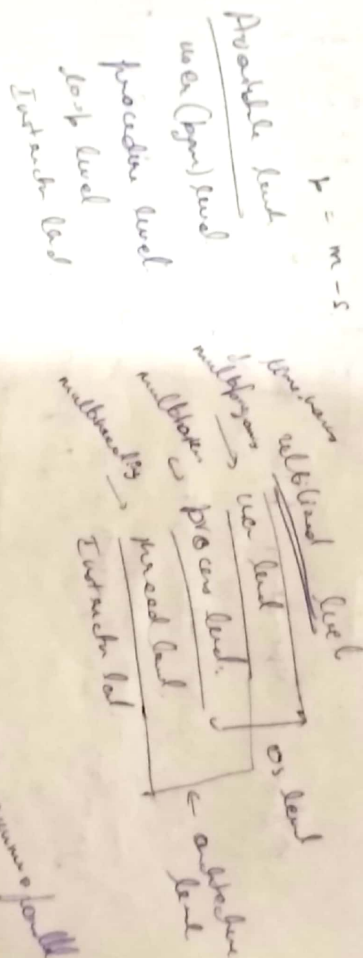 p = m - s
Available level
user (pgm) level
procedure level
loop level
Instructn level
utilized level
multipgm → user level
multitaskn → process level
multithreadg → thread level
Instructn level
OS level
← architecture level